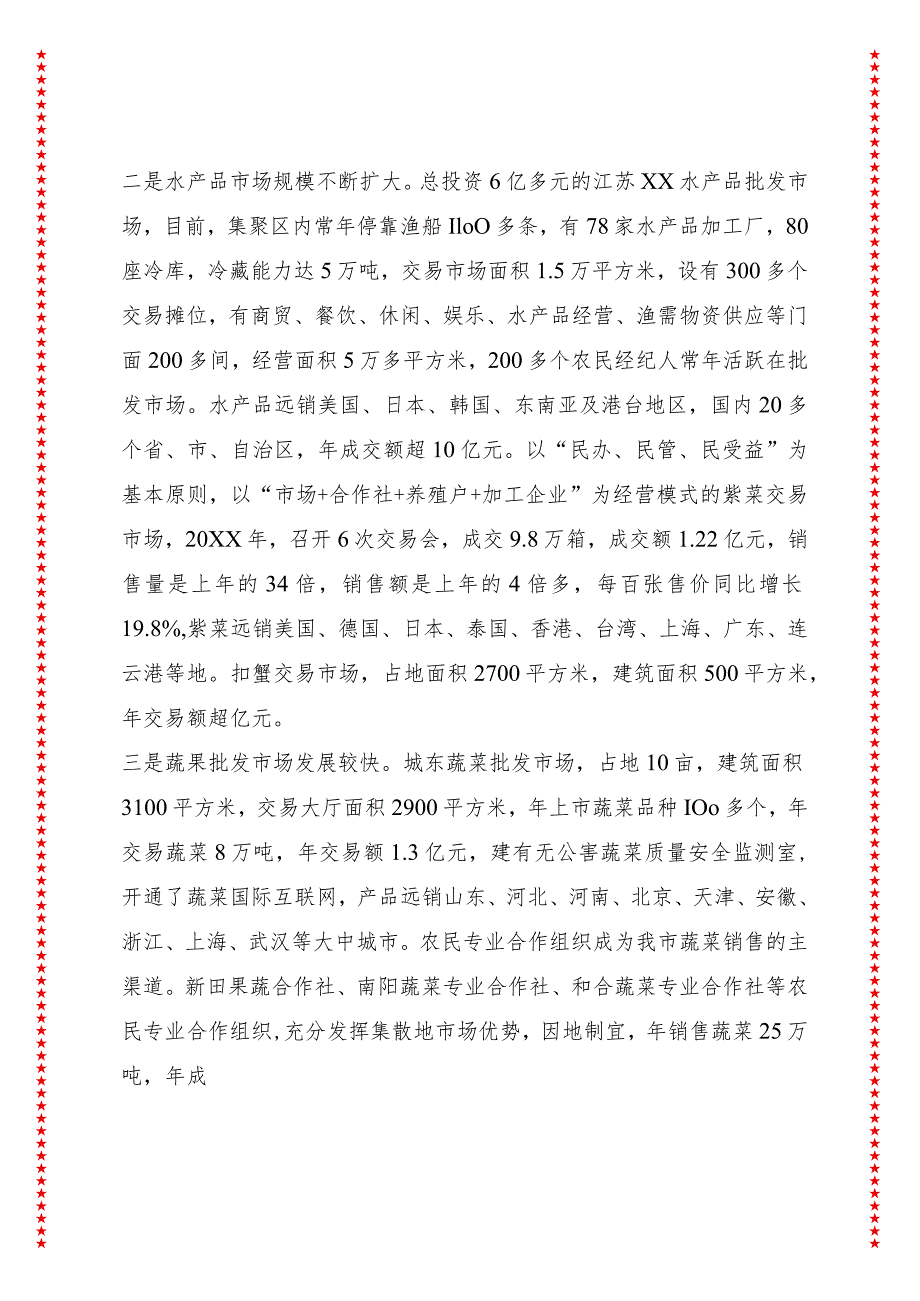 二是水产品市场规模不断扩大。总投资6亿多元的江苏XX水产品批发市
场，目前，集聚区内常年停靠渔船IloO多条，有78家水产品加工厂，80
座冷库，冷藏能力达5万吨，交易市场面积1.5万平方米，设有300多个
交易摊位，有商贸、餐饮、休闲、娱乐、水产品经营、渔需物资供应等门
面200多间，经营面积5万多平方米，200多个农民经纪人常年活跃在批
发市场。水产品远销美国、日本、韩国、东南亚及港台地区，国内20多
个省、市、自治区，年成交额超10亿元。以“民办、民管、民受益”为
基本原则，以“市场+合作社+养殖户+加工企业”为经营模式的紫菜交易
市场，20XX年，召开6次交易会，成交9.8万箱，成交额1.22亿元，销
售量是上年的34倍，销售额是上年的4倍多，每百张售价同比增长
19.8%,紫菜远销美国、德国、日本、泰国、香港、台湾、上海、广东、连
云港等地。扣蟹交易市场，占地面积2700平方米，建筑面积500平方米，
年交易额超亿元。
三是蔬果批发市场发展较快。城东蔬菜批发市场，占地10亩，建筑面积
3100平方米，交易大厅面积2900平方米，年上市蔬菜品种IOo多个，年
交易蔬菜8万吨，年交易额1.3亿元，建有无公害蔬菜质量安全监测室，
开通了蔬菜国际互联网，产品远销山东、河北、河南、北京、天津、安徽、
浙江、上海、武汉等大中城市。农民专业合作组织成为我市蔬菜销售的主
渠道。新田果蔬合作社、南阳蔬菜专业合作社、和合蔬菜专业合作社等农
民专业合作组织,充分发挥集散地市场优势，因地制宜，年销售蔬菜25万
吨，年成